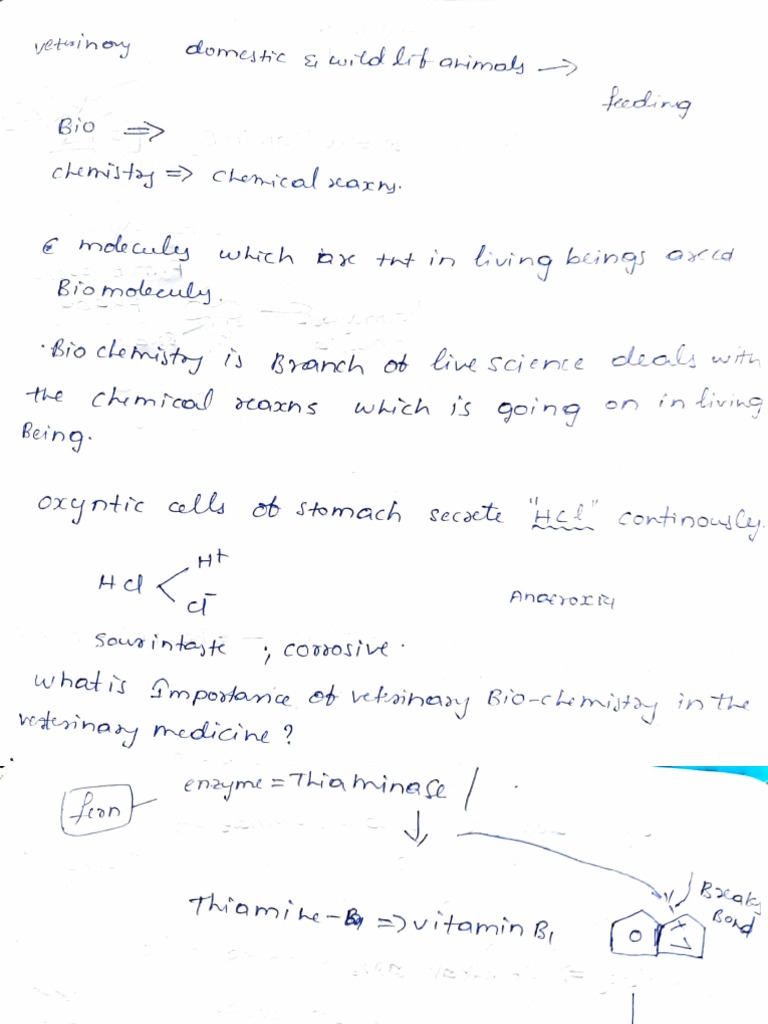 veterinory domestic & wild lif animals →
feeding
Bio ⇒
chemistry ⇒ chemical reaxns.
molecules which are tnt in living beings are cd
Biomolecules.
·Bio chemistry is Branch of live science deals with
the chemical reaxns which is going on in living
Being.
oxyntic cells of stomach secrete "HCl" continously.
HCl < H+
Cl-
Anaeroxia
sour in taste ; corrosive.
what is Importance of veterinary Bio-chemistry in the
veterinary medicine?
fern enzyme = Thiaminase /
↓
Breaks
Bond
Thiamine - B1 ⇒ vitamin B1